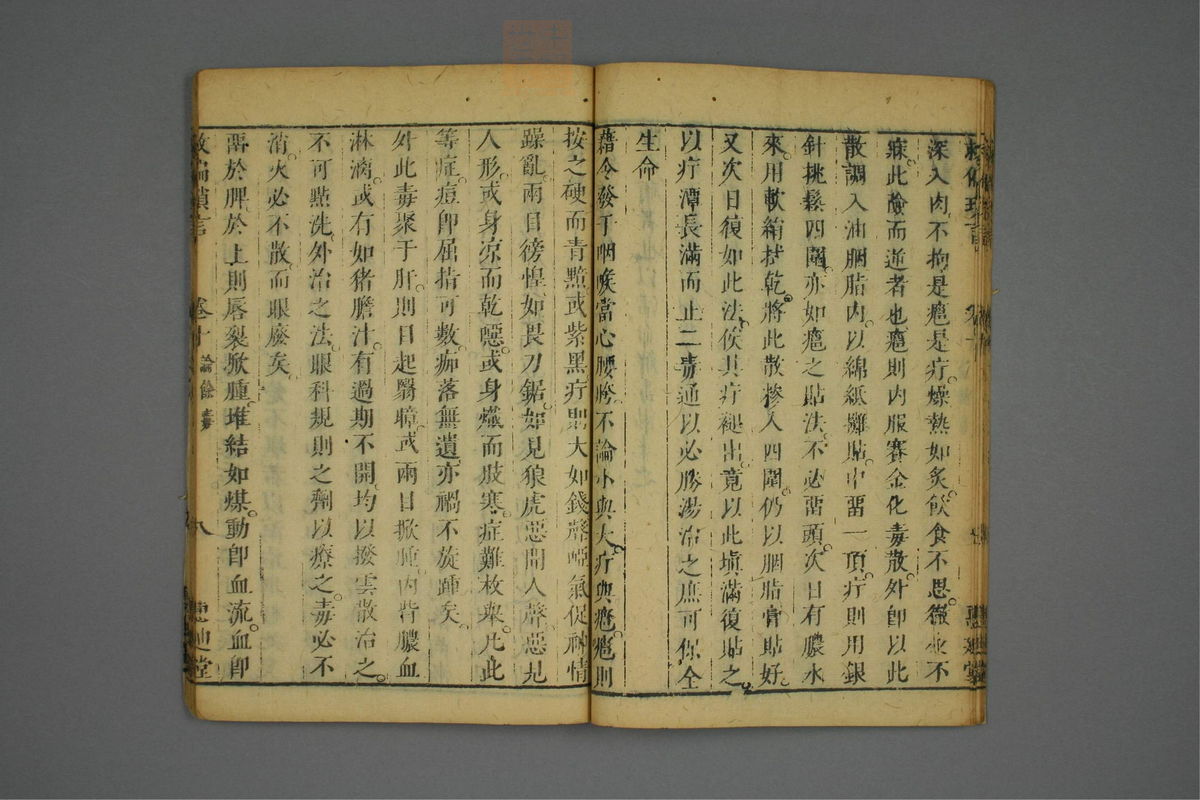 深入肉不拘是瘟是疔燥熱如炙飲食不思徹亦不
寐此險而逆者也瘟則内服賽金化毒散外卽以此
散調入油胭脂内以綿紙雛貼中畱一頂疔則用銀
針挑鬆四圍亦如瘟之貼法不必畱頭次日有膿水
來用軟絹拭乾將此散摻入四圍仍以胭脂膏貼好
又次日復如此法俟其疔褪出竟以此塡滿復貼之
以疔潭長滿而止二毒通以必勝湯治之庶可保全
生命
藉令發于咽喉當心腰胯不論小與大疔與瘟瘟則
按之硬而青黯或紫黑疔則大如錢聲啞氣促神情
躁亂兩目徬惶如畏刀鋸如見狼虎惡聞人聲惡見
人形或身凉而乾噁或身爊而肢寒症難枚舉凡此
等症痘卽屈指可數痂落無遺亦禍不旋踵矣
外此毒聚于肝則目起翳瞕或兩目掀腫内背膿血
淋漓或有如猪膽汁有過期不開均以撥雲散治之
不可㸃洗外治之法眼科規則之劑以療之毒必不
消火必不散而眼廢矣
畱於脾於上則唇裂掀腫堆結如煤動卽血流血卽
救偏瑣言 卷十 論餘毒 八 惠迪堂